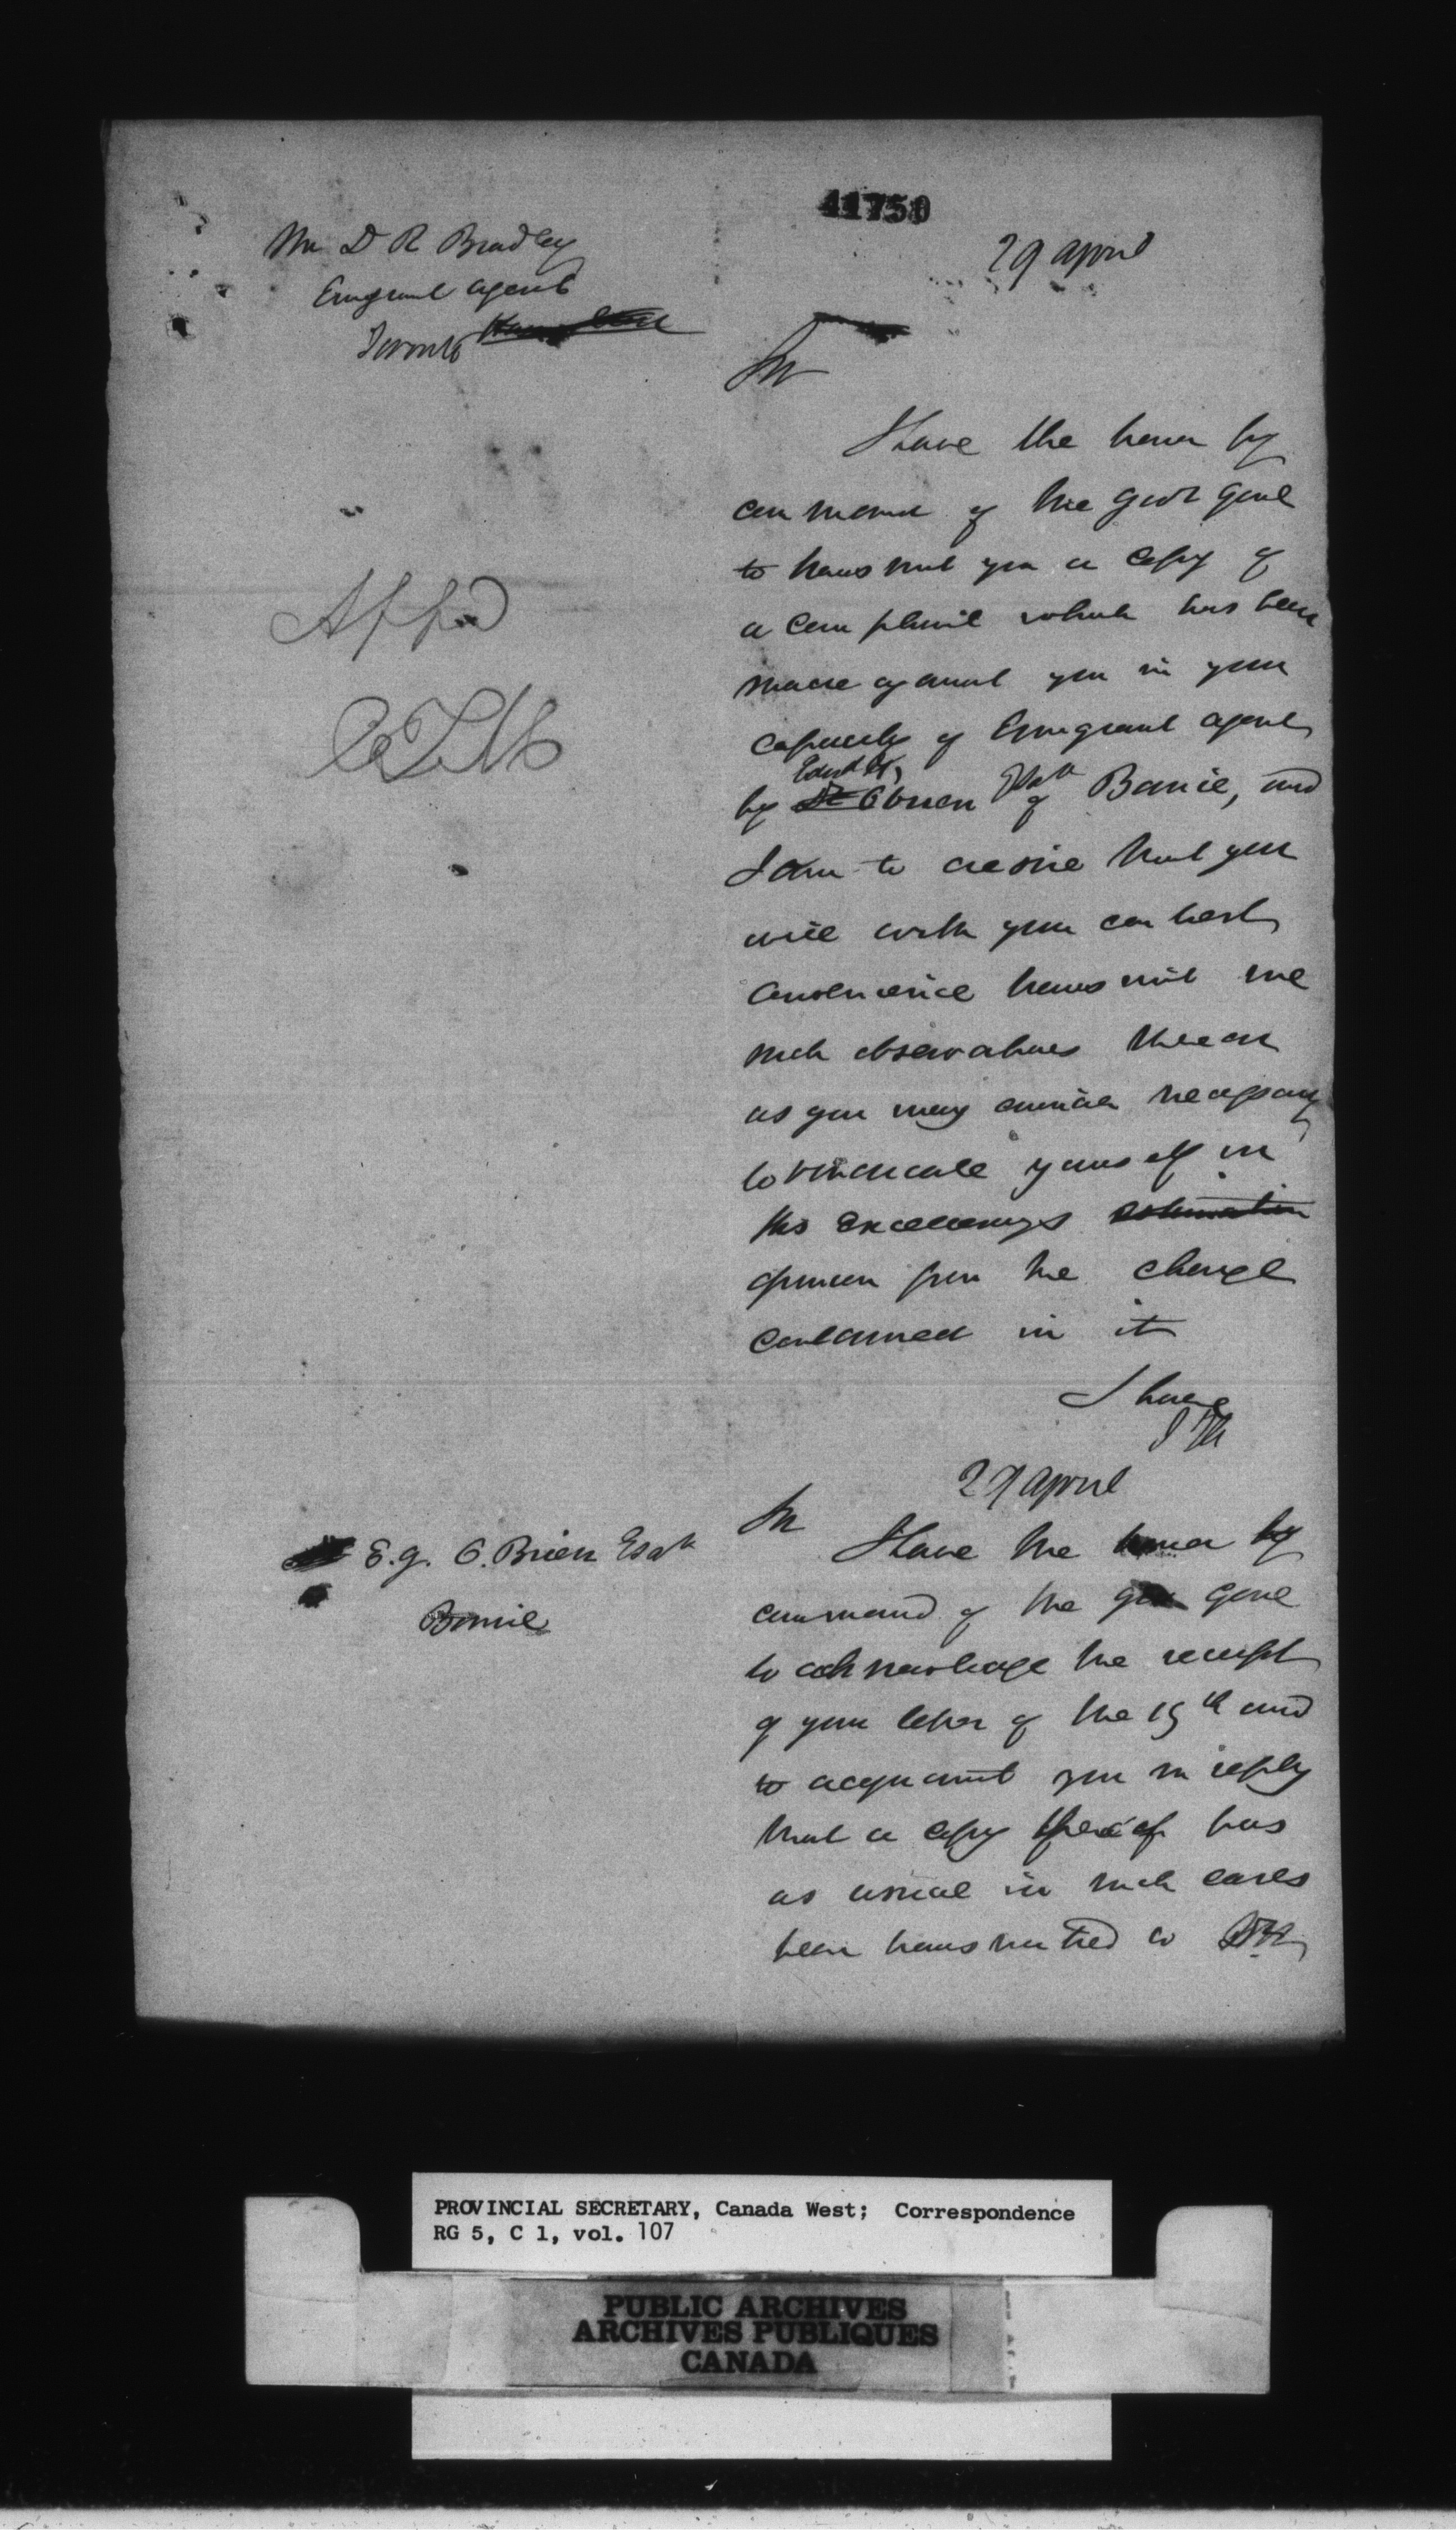 41750
Mr D R Bradley
Emigrant Agent
Toronto Hamilton
29 April
Sir
I have the honor by
command of the Govr Genl
to transmit you a copy of
a complaint which has been
made against you in your
capacity of Emigrant Agent
Edwd G,
by O'Brien Esqr of Barrie, and
I am to desire that you
will with your earliest
convenience transmit me
such observations thereon
as you may consider necessary
to vindicate yourself in
His Excellency's estimation
opinion from the charge
contained in it
I have
Appd
29 April
Sir
E. G. O'Brien Esqr
Barrie
I have the honor by
command of the Gov Genl
to acknowledge the receipt
of your letter of the 15th and
to acquaint you in reply
that a copy thereof has
as usual in such cases
been transmitted to
PROVINCIAL SECRETARY, Canada West; Correspondence
RG 5, C 1, vol. 107
PUBLIC ARCHIVES
ARCHIVES PUBLIQUES
CANADA